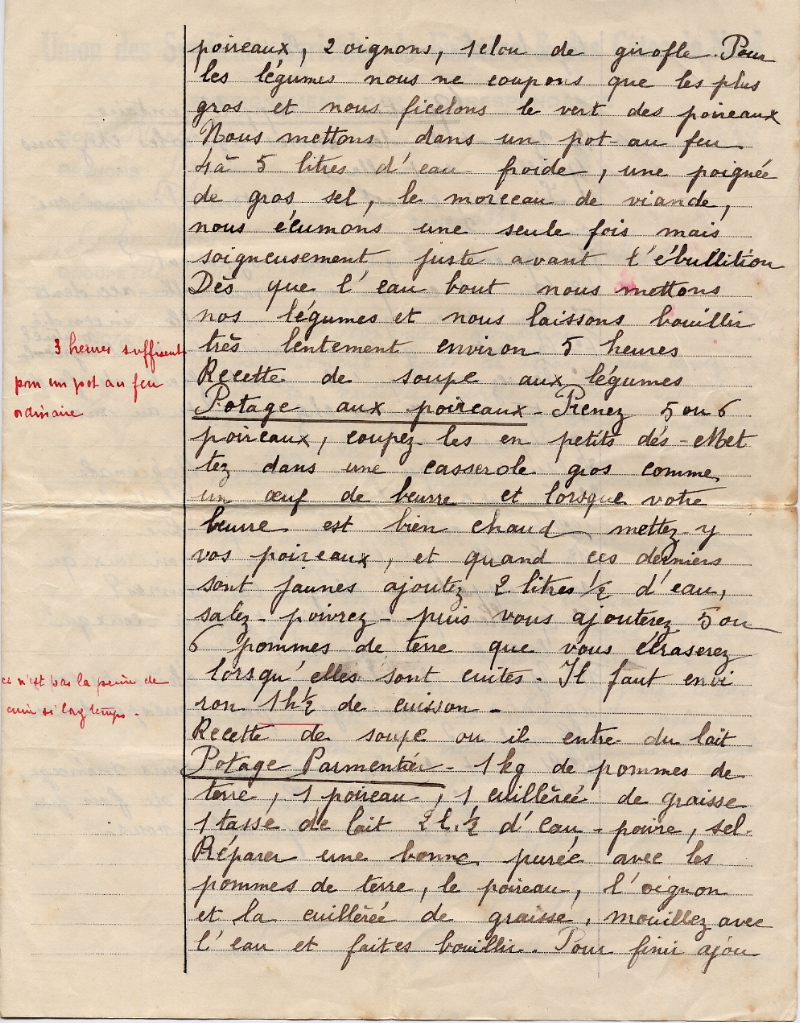 poireaux, 2 oignons, 1 clou de girofle. Pour
les légumes nous ne coupons que les plus
gros et nous ficelons le vert des poireaux
Nous mettons dans un pot-au feu
4 à 5 litres d'eau froide, une poignée
de gros sel, le morceau de viande,
nous écumons une seule fois mais
soigneusement juste avant l'ébullition
Dès que l'eau bout nous mettons
nos légumes et nous laissons bouillir
très lentement environ 5 heures
3 heures suffisent
pour un pot au feu
ordinaire
Recette de soupe aux légumes
Potage aux poireaux - Prenez 5 ou 6
poireaux, coupez-les en petits dés - Met
tez dans une casserole gros comme
un œuf de beurre et lorsque votre
beurre est bien chaud mettez-y
vos poireaux, et quand ces derniers
sont jaunes ajoutez 2 litres 1/2 d'eau,
salez - poivrez - puis vous ajouterez 5 ou
6 pommes de terre que vous écraserez
lorsqu'elles sont cuites - Il faut envi
ron 1h 1/2 de cuisson -
ce n'est pas la peine de
cuire si longtemps -
Recette de soupe ou il entre du lait
Potage Parmentier - 1 kg de pommes de
terre, 1 poireau, 1 cuillèrée de graisse
1 tasse de lait 2 l. 1/2 d'eau - poivre, sel.
Réparer une bonne purée avec les
pommes de terre, le poireau, l'oignon
et la cuillèrée de graisse, mouillez avec
l'eau et faites bouillir. Pour finir ajou